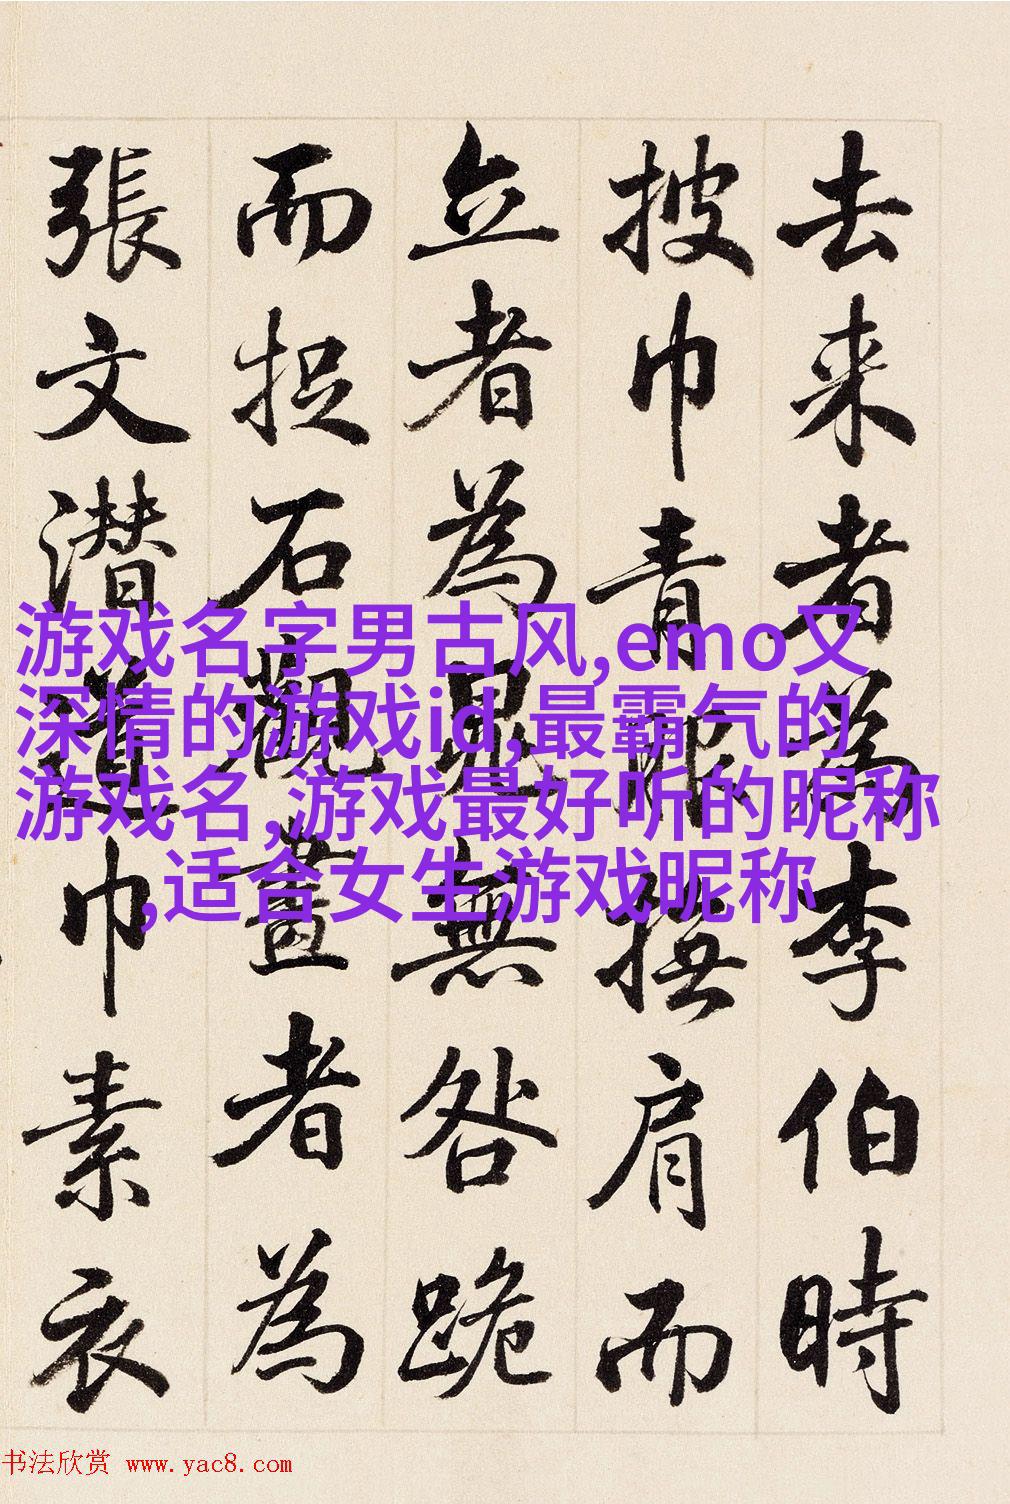 去来者為李伯時
披巾青服撫肩而
立者為晁無咎跪
而捉石觀畫者為
張文潜道巾素衣
游戏名字男古风,emo又
深情的游戏id,最霸气的
游戏名,游戏最好听的昵称
,适合女生游戏昵称
书法欣赏 www.yac8.com